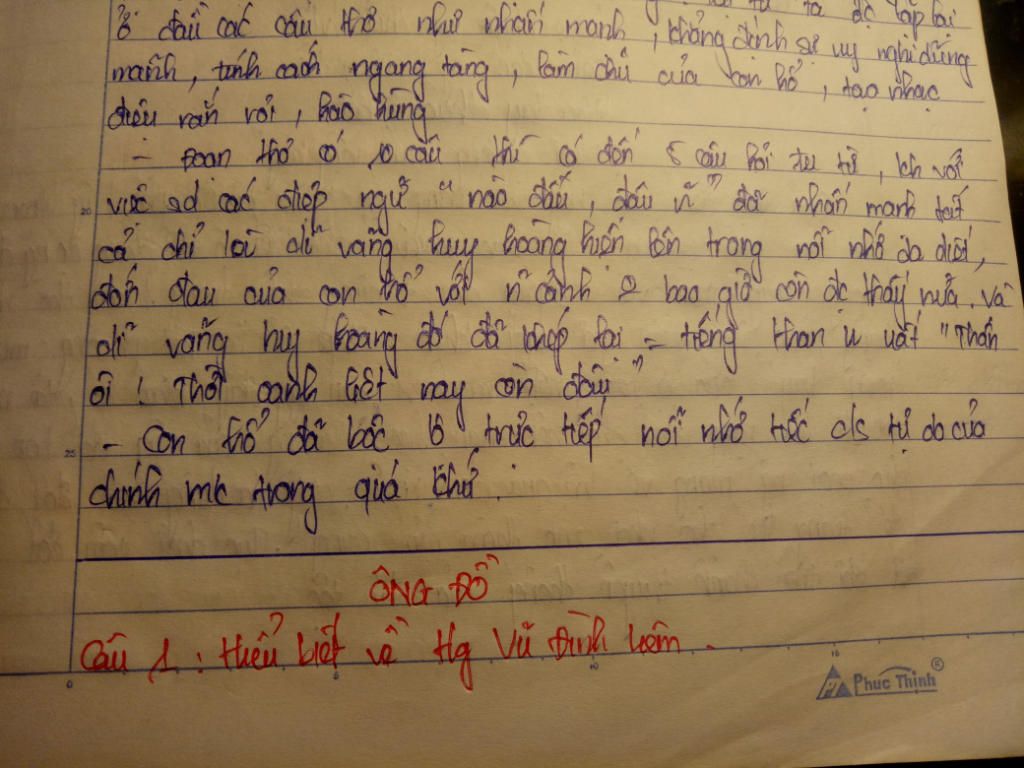 ta đc lặp lại
ở đầu các câu thơ như nhấn mạnh, khẳng định sự uy nghi dũng
mãnh, tính cách ngang tàng, làm chủ của con hổ, tạo nhạc
điệu rắn rỏi, hào hùng
- Đoạn thơ có 10 câu thì có đến 5 câu hỏi tu từ, kh với
việc sd các điệp ngữ " nào đâu, đâu ~" đã nhấn mạnh tất
cả chỉ là dĩ vãng huy hoàng hiện lên trong nỗi nhớ da diết,
đớn đau của con hổ với ~ cảnh o bao giờ còn đc thấy nữa. Và
dĩ vãng huy hoàng đó đã khép lại = tiếng than u uất "Than
ôi! Thời oanh liệt nay còn đâu"
- Con hổ đã bộc lộ trực tiếp nỗi nhớ tiếc c/s tự do của
chính mk trong quá khứ.
ÔNG ĐỒ
Câu 1: Hiểu biết về tg Vũ Đình Liên.
Phúc Thịnh®
20
25
0
5
10
15